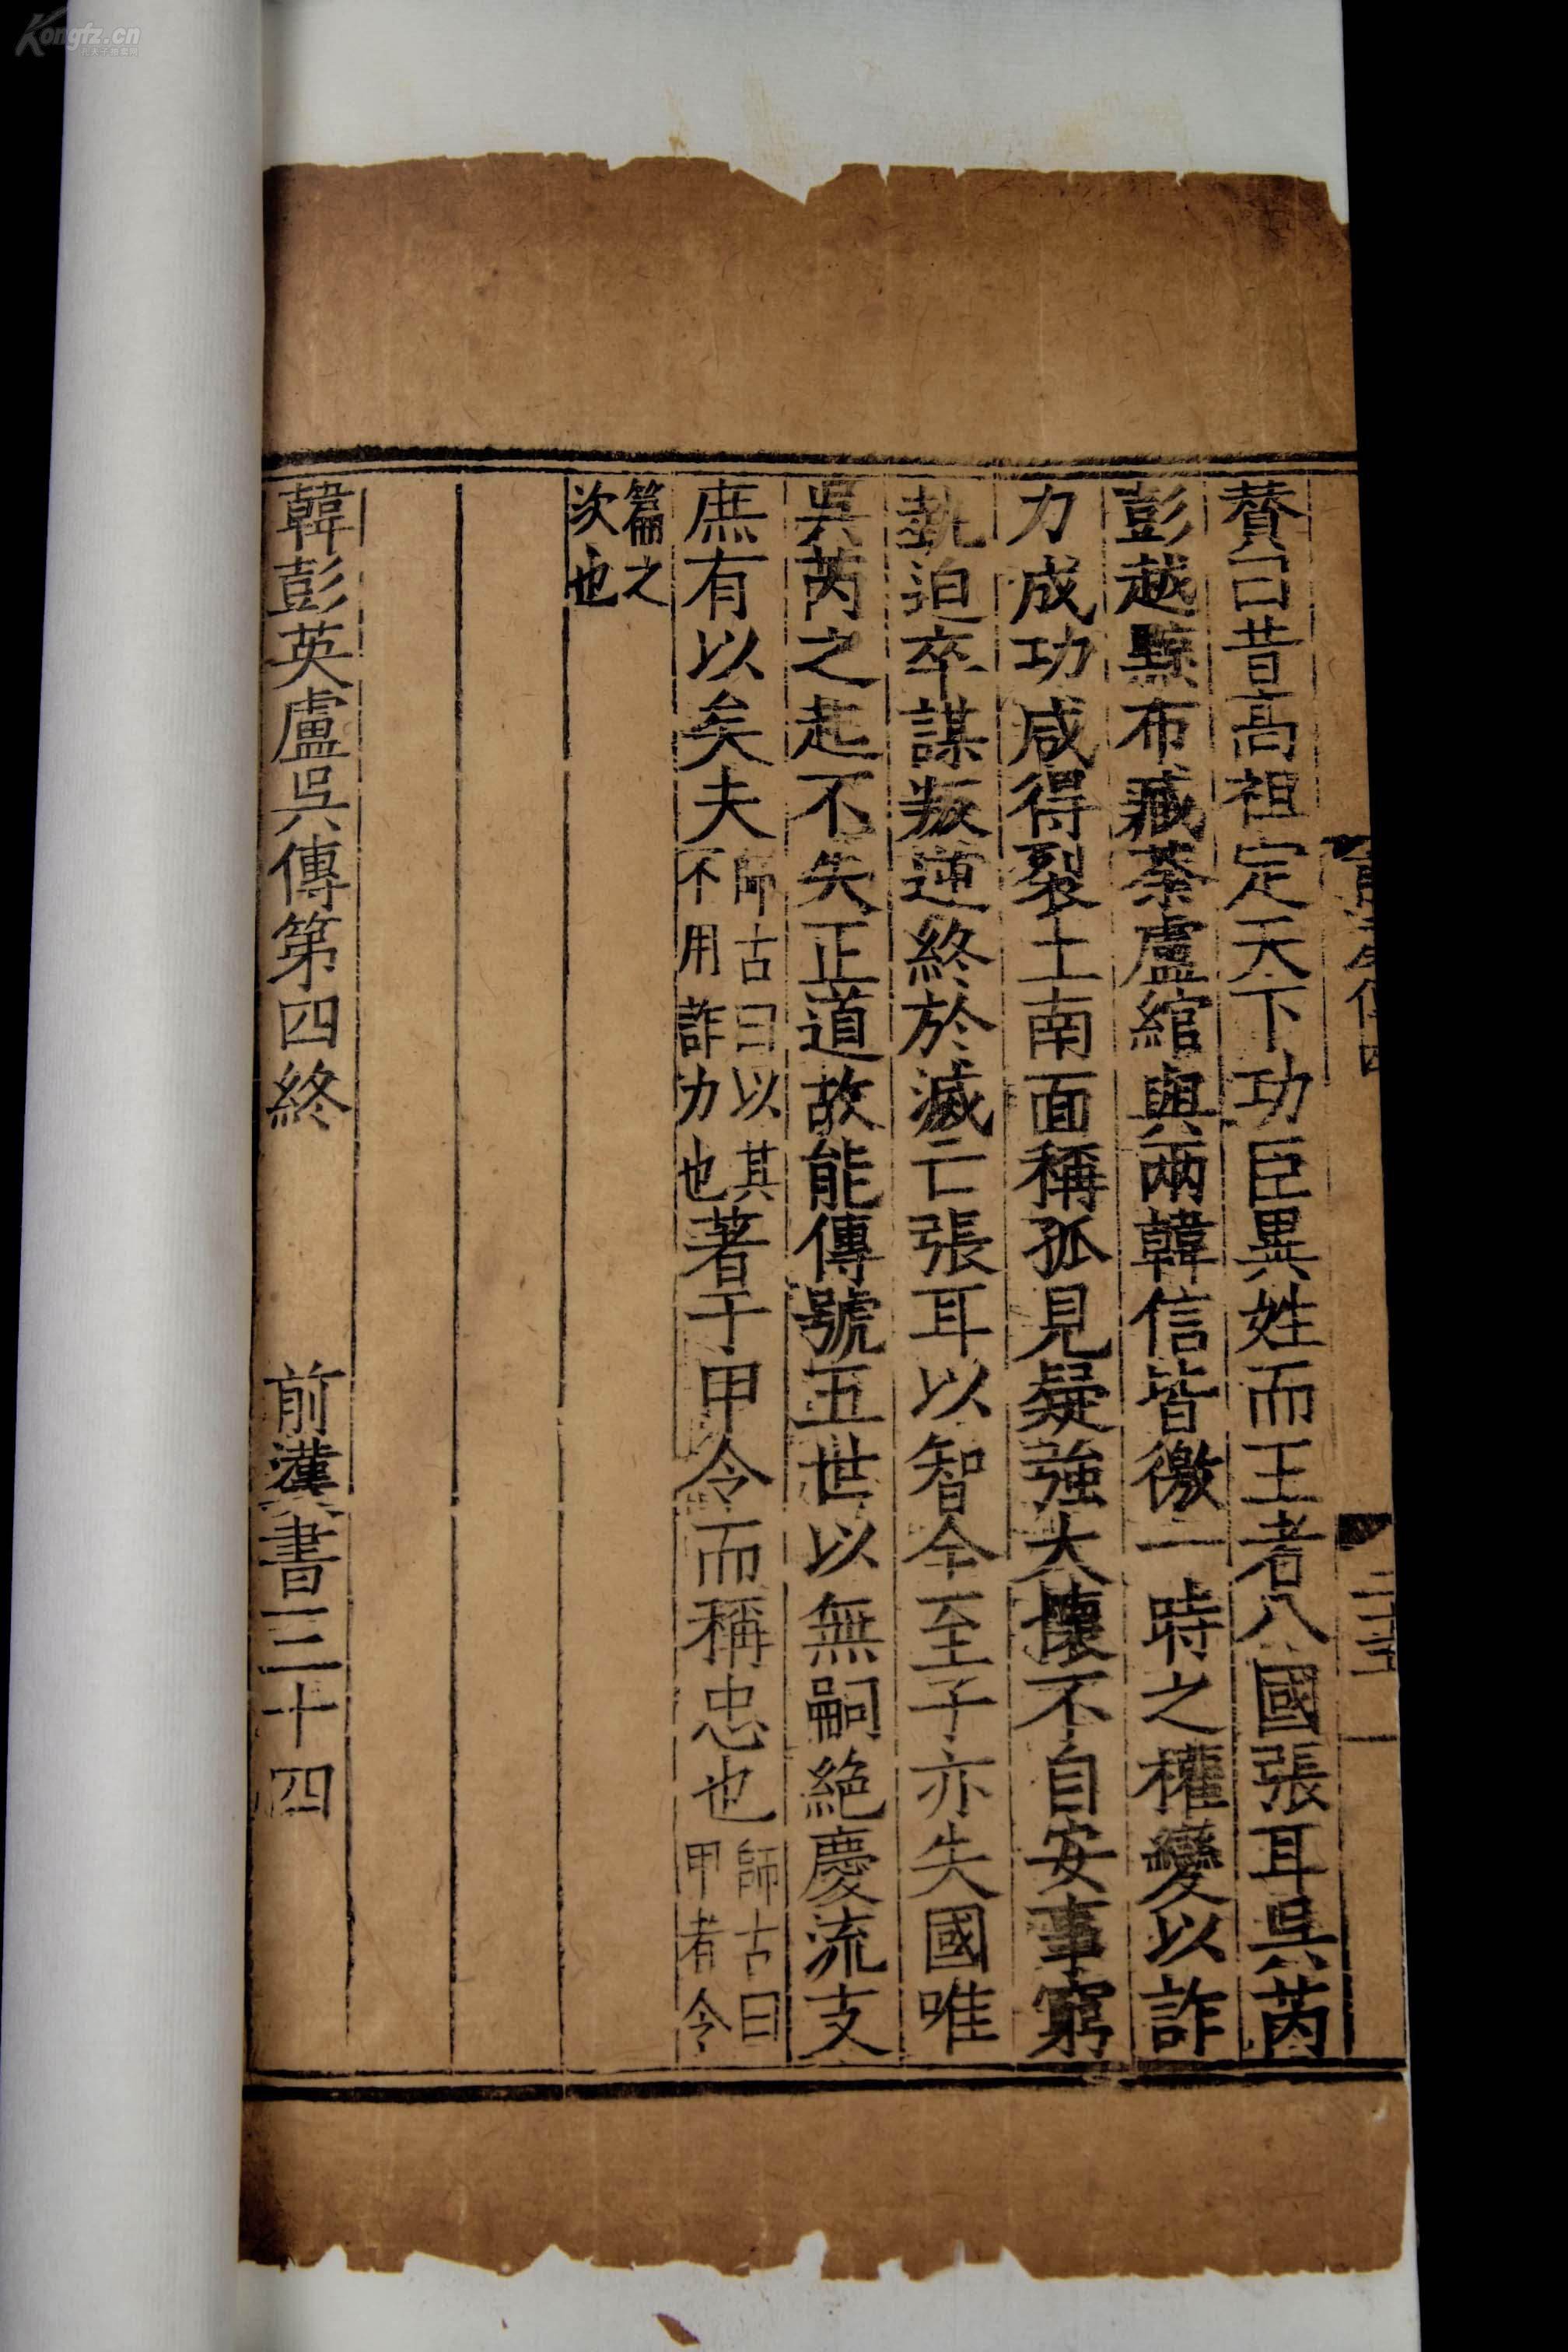 賛曰昔高祖定天下功臣異姓而王者八國張耳吳芮
彭越黥布臧荼盧綰與兩韓信皆徼一時之權變以詐
力成功咸得裂土南面稱孤見疑強大懷不自安事窮
埶迫卒謀叛逆終於滅亡張耳以智全至子亦失國唯
吳芮之起不失正道故能傳號五世以無嗣絶慶流支
庶有以矣夫師古曰以其不用詐力也著于甲令而稱忠也師古曰甲者令
篇之次也
韓彭英盧吳傳第四終 前漢書三十四
Kongfz.cn